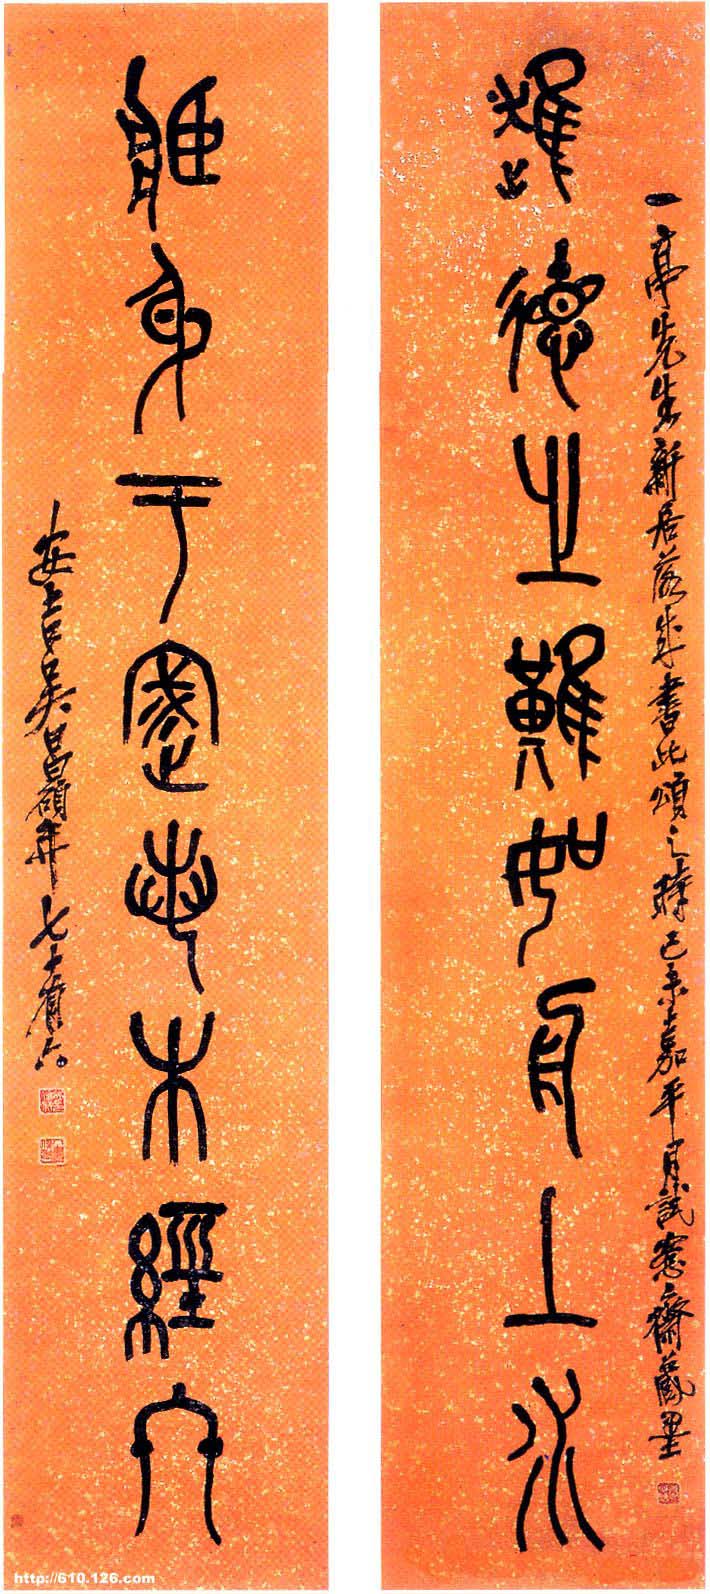 一亭先生新居落成書此頌之時己未嘉平月試愙齋藏墨
進德之難如舟上水
身于木經
安吉吳昌碩年七十有六
http://610.126.com